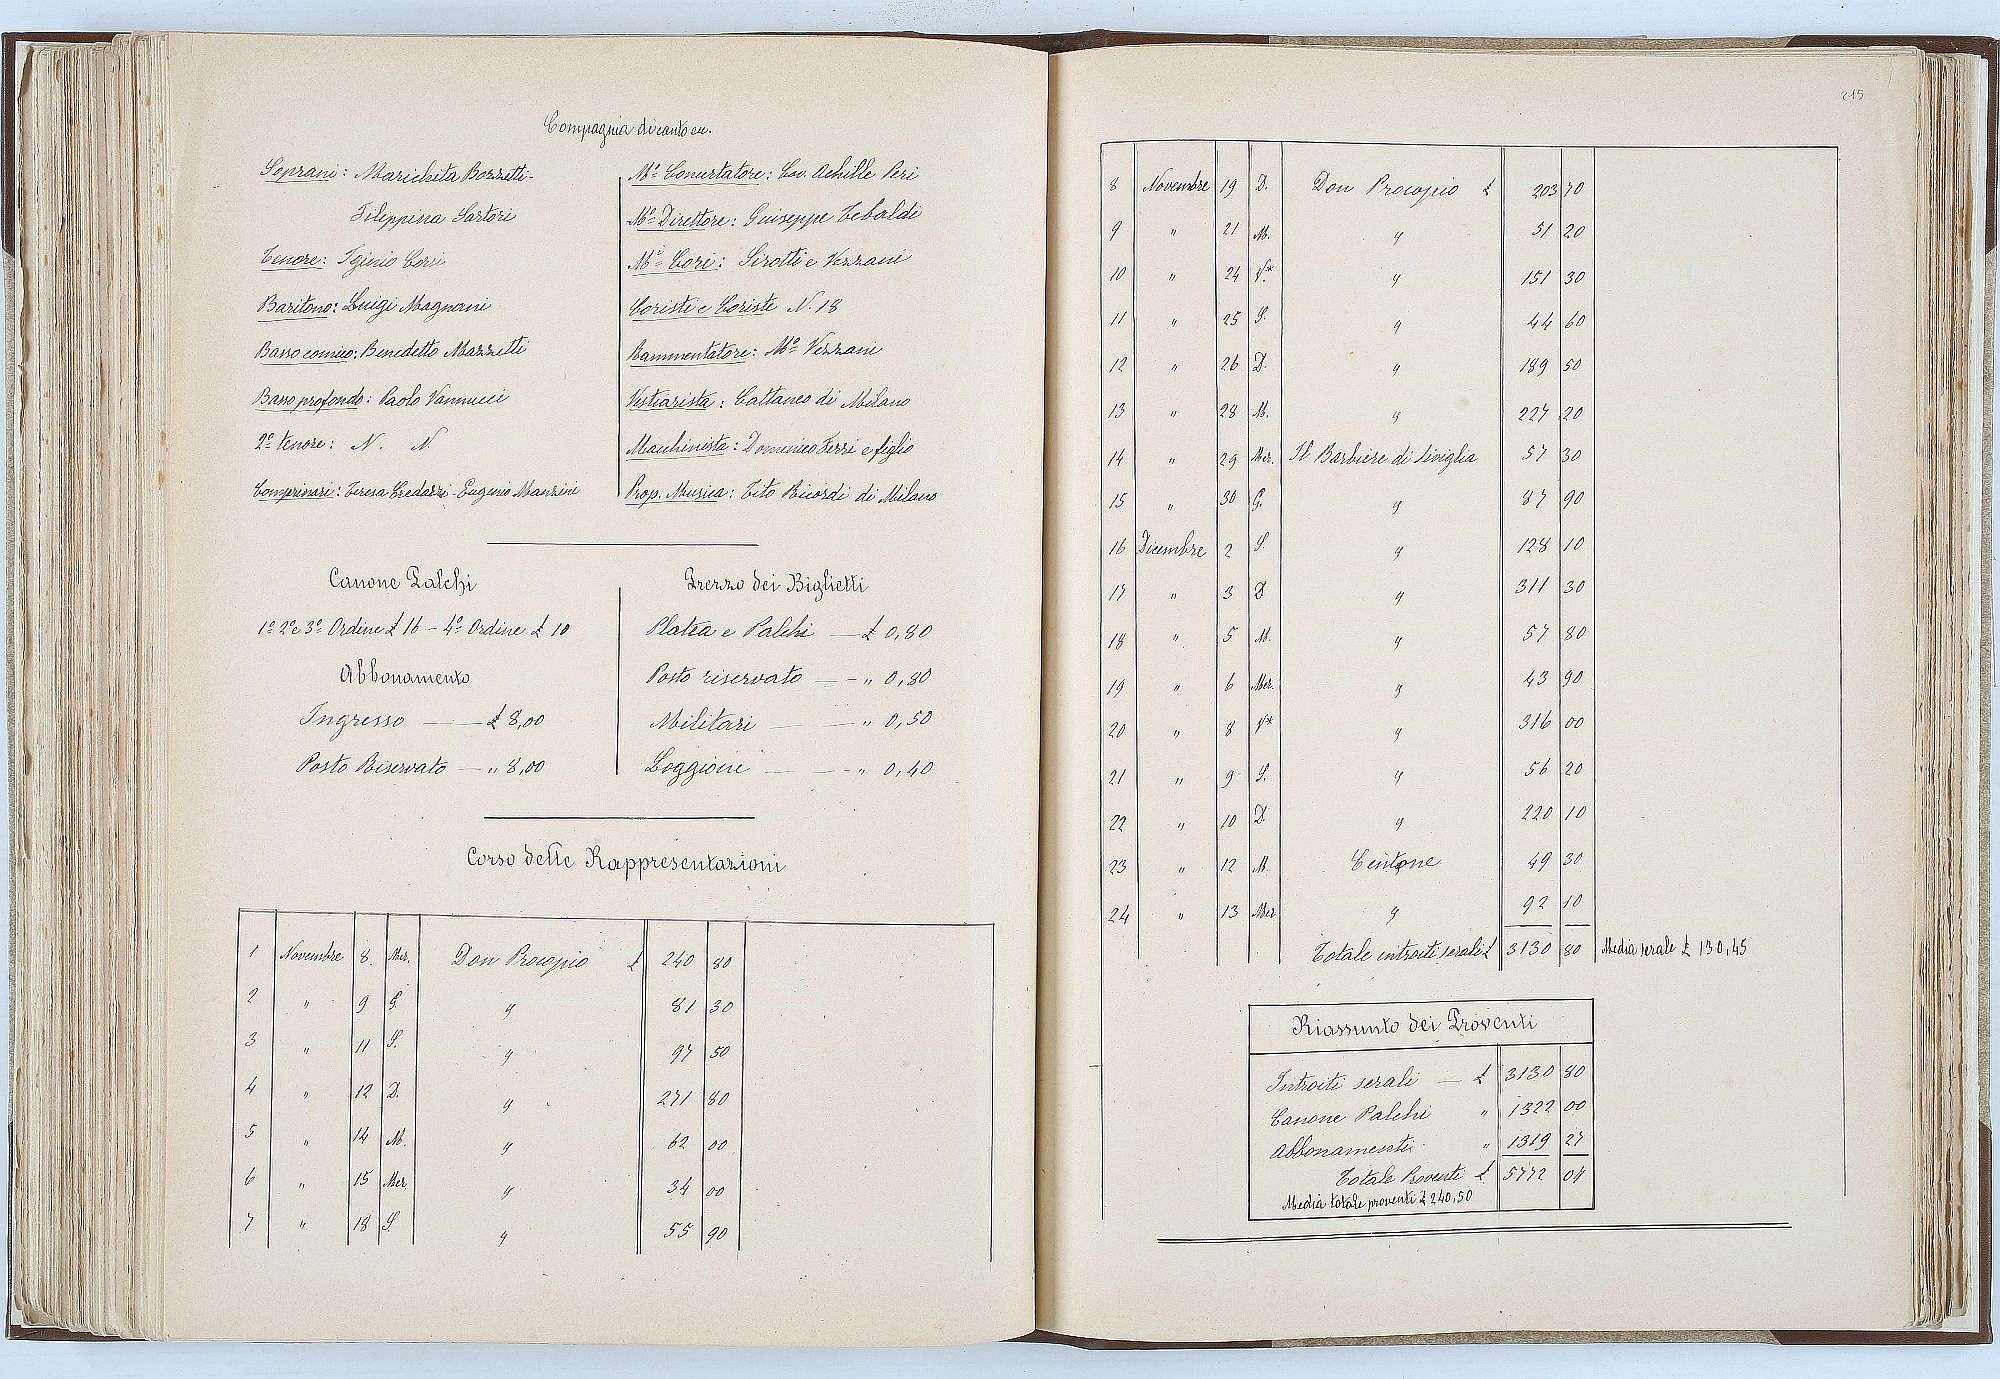 Compagnia di canto ec.
Soprani: Marichita Bozzetti-
Filippina Sartori
Tenore: Iginio Corsi
Baritono: Luigi Magnani
Basso comico: Benedetto Mazzetti
Basso profondo: Paolo Vannucci
2º Tenore: N. N
Comprimari: Teresa Credazzi - Eugenio Manzini
Mº Concertatore: Cav. Achille Peri
Mº Direttore: Giuseppe Tebaldi
Mi Cori: Sirotti e Vezzani
Coristi e Coriste N. 18
Rammentatore: Mº Vezzani
Vestiarista: Cattaneo di Milano
Macchinista: Domenico Ferri e figlio
Prop. Musica: Tito Ricordi di Milano
Canone Palchi
1º 2º e 3º Ordine £ 16 - 4º Ordine £ 10
Abbonamento
Ingresso — £ 8,00
Posto Riservato — „ 8,00
Prezzo dei Biglietti
Platea e Palchi — £ 0,80
Posto riservato — „ 0,80
Militari — „ 0,50
Loggione — „ 0,40
Corso delle Rappresentazioni
1 Novembre 8. Mer. Don Procopio £ 240 80
2 „ 9 G. „ 81 30
3 „ 11 S. „ 97 50
4 „ 12 D. „ 271 80
5 „ 14 M. „ 62 00
6 „ 15 Mer „ 34 00
7 „ 18 S. „ 55 90
215
8 Novembre 19 D. Don Procopio £ 203 70
9 „ 21 M. „ 51 20
10 „ 24 V.* „ 151 30
11 „ 25 S. „ 44 60
12 „ 26 D. „ 189 50
13 „ 28 M. „ 227 20
14 „ 29 Mer. Il Barbiere di Siviglia 57 30
15 „ 30 G. „ 87 90
16 Dicembre 2 S. „ 128 10
17 „ 3 D „ 311 30
18 „ 5 M. „ 57 80
19 „ 6 Mer. „ 43 90
20 „ 8 V* „ 316 00
21 „ 9 S. „ 56 20
22 „ 10 D „ 220 10
23 „ 12 M. Centone 49 30
24 „ 13 Mer „ 92 10
Totale introiti serali £ 3130 80 Media serale £ 130,45
Riassunto dei Proventi
Introiti serali — £ 3130 80
Canone Palchi „ 1322 00
Abbonamenti „ 1319 27
Totale Proventi £ 5772 07
Media totale proventi £ 240,50